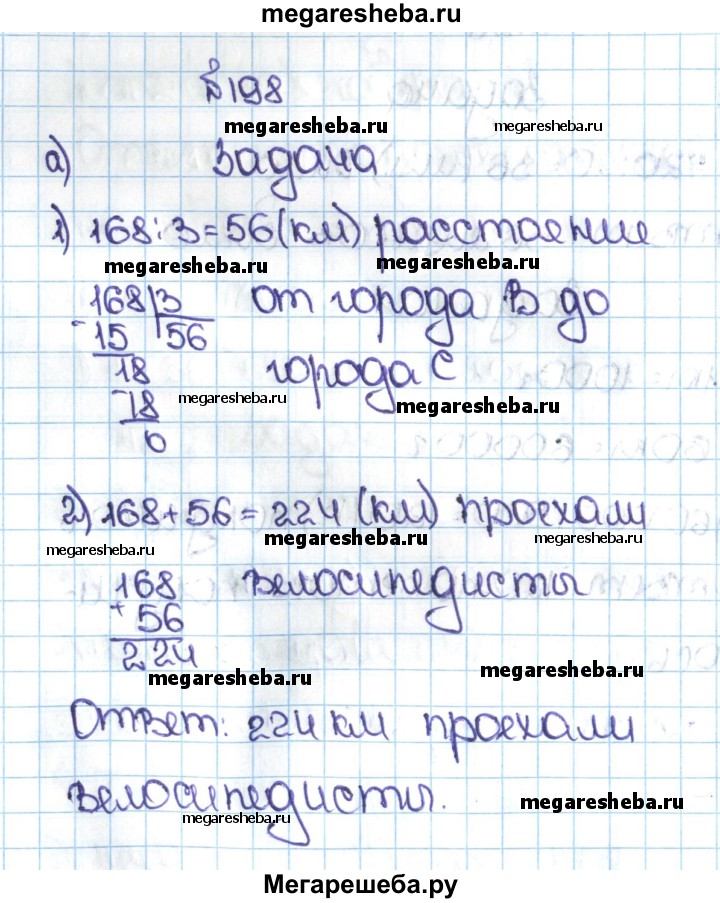 megaresheba.ru
№198
megaresheba.ru megaresheba.ru
а) Задача
1) 168:3=56(км) расстояние
megaresheba.ru megaresheba.ru
168|3 от города В до
-15 56
18 города С
megaresheba.ru megaresheba.ru
-18
0
2) 168+56=224(км) проехали
megaresheba.ru megaresheba.ru megaresheba.ru
168 велосипедисты
+ 56
224
megaresheba.ru megaresheba.ru
Ответ: 224 км проехали
велосипедисты.
megaresheba.ru megaresheba.ru
Мегарешеба.ру